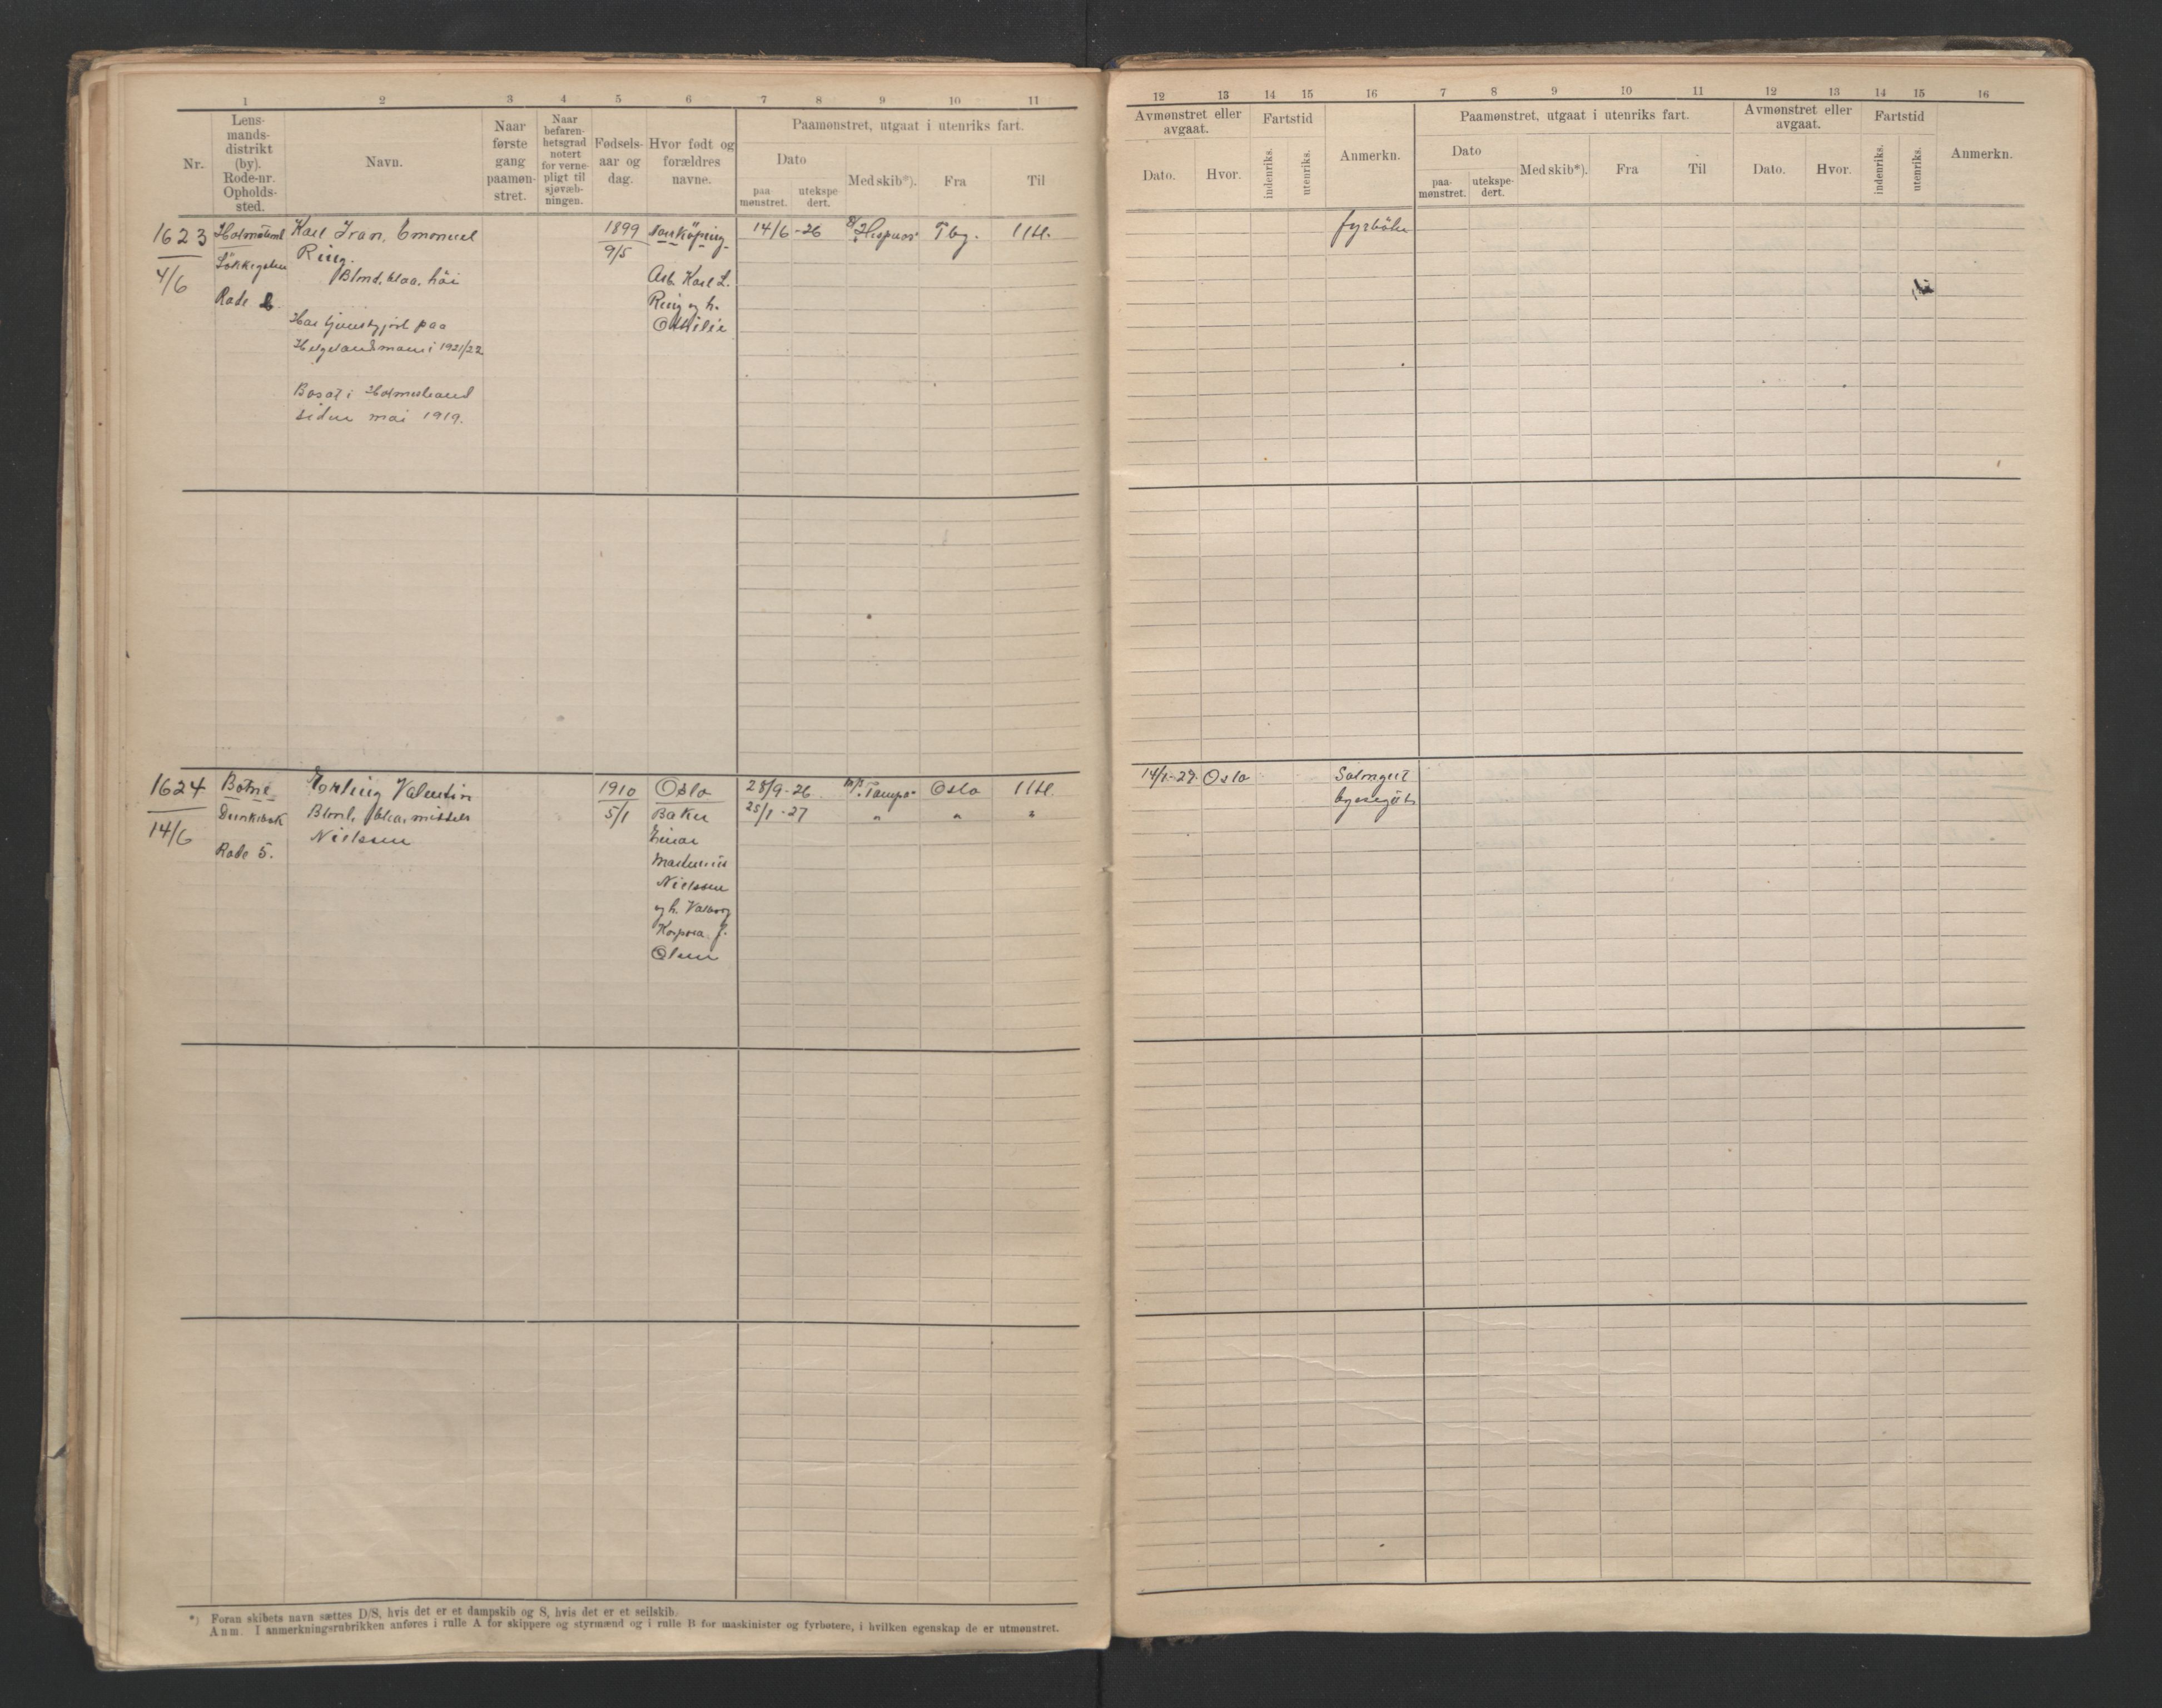 1 2 3 4 5 6 7 8 9 10 11
Nr.
Lens-
mands-
distrikt
(by).
Rode-nr.
Opholds-
sted.
Navn.
Naar
første
gang
paamøn-
stret.
Naar
befaren-
hetsgrad
notert
for verne-
pligt til
sjøvæb-
ningen.
Fødsels-
aar og
dag.
Hvor født og
forældres
navne.
Paamønstret, utgaat i utenriks fart.
Dato
paa
mønstret.
utekspe-
dert.
Med skib*).
Fra
Til
1623
4/6
Rode
Karl Ivan, Emanuel
Ring.
Blond, blaa, höi
Har tjenestgjort paa
i 1921/22
Bosat i Holmestrand
siden mai 1919.
1899
9/5
Norköping
Arb. Karl L.
Ring og h.
Ottilie
14/6 - 26
Tbg.
Utl.
1624
14/6
Botne
Rode 5.
Erling Valentin
Blond, blaa, middels
Nielsen
1910
5/1
Oslo
Baker
Einar
Nielsen
og h. Valborg
f.
Olsen
28/9 - 26
M/S Tampa
Oslo
Utl.
25/1 - 27
" " "
*) Foran skibets navn sættes D/S, hvis det er et dampskib og S, hvis det er et seilskib.
Anm. I anmerkningsrubrikken anføres i rulle A for skippere og styrmænd og i rulle B for maskinister og fyrbøtere, i hvilken egenskap de er utmønstret.
12 13 14 15 16 7 8 9 10 11 12 13 14 15 16
Avmønstret eller
avgaat.
Dato.
Hvor.
Fartstid
indenriks.
utenriks.
Anmerkn.
Paamønstret, utgaat i utenriks fart.
Dato
paa-
mønstret.
utekspe-
dert.
Med skib*).
Fra
Til
Avmønstret eller
avgaat.
Dato.
Hvor.
Fartstid
indenriks.
utenriks.
Anmerkn.
fyrböter
14/1-27.
Oslo
Salongut
byssegut